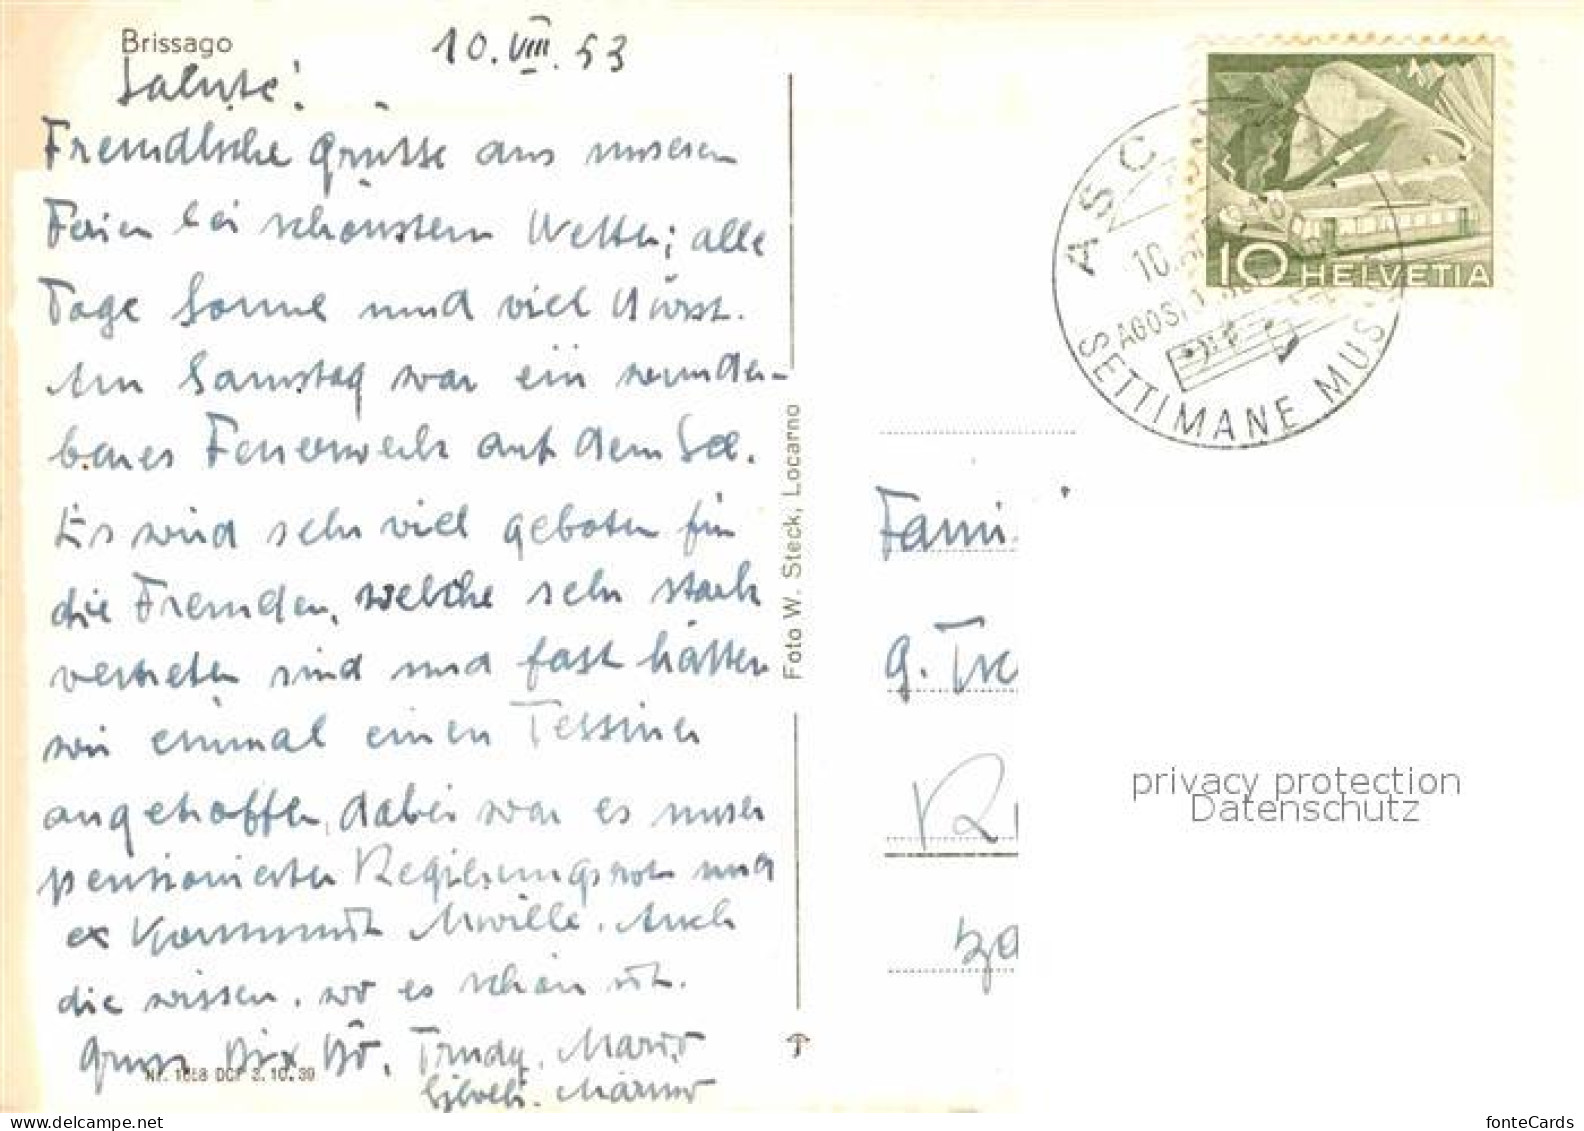 Brissago
10. VIII. 53
Salute!
Freundliche Grüsse aus unseren
Ferien bei schönstem Wetter; alle
Tage Sonne und viel Durst.
Am Samstag war ein wunder-
bares Feuerwerk auf dem See.
Es wird sehr viel geboten für
die Fremden, welche sehr stark
vertreten sind und fast hätten
wir einmal einen Tessiner
angetroffen, dabei war es unser
pensionierter Regierungsrat und
ex Mville. Auch
die wissen, wo es schön ist.
Gruss Trudy, Mario
Marino
Nr. 1658 DCF 3.10.39
Foto W. Steck, Locarno
ASC
10.
AGOSTO
SETTIMANE MUS
10 HELVETIA
Fami
G. Tr
R
privacy protection
Datenschutz
fonteCards